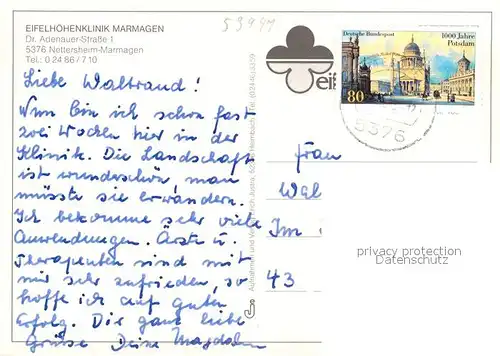 EIFELHÖHENKLINIK MARMAGEN
Dr. Adenauer-Straße 1
5376 Nettersheim-Marmagen
Tel.: 0 24 86 / 7 10
Liebe Waltraud!
Nun bin ich schon fast
zwei Wochen hier in der
Klinik. Die Landschaft
ist wunderschön, man
müßte sie erwandern.
Ich bekomme sehr viele
Anwendungen. Ärzte u.
Therapeuten sind mit
mir sehr zufrieden, so
hoffe ich auf guten
Erfolg. Dir ganz liebe
Grüße Deine Magdalen
53941
eif
Deutsche Bundespost
1000 Jahre
Potsdam
80
5376
Frau
Wal
Im
43
privacy protection
Datenschutz